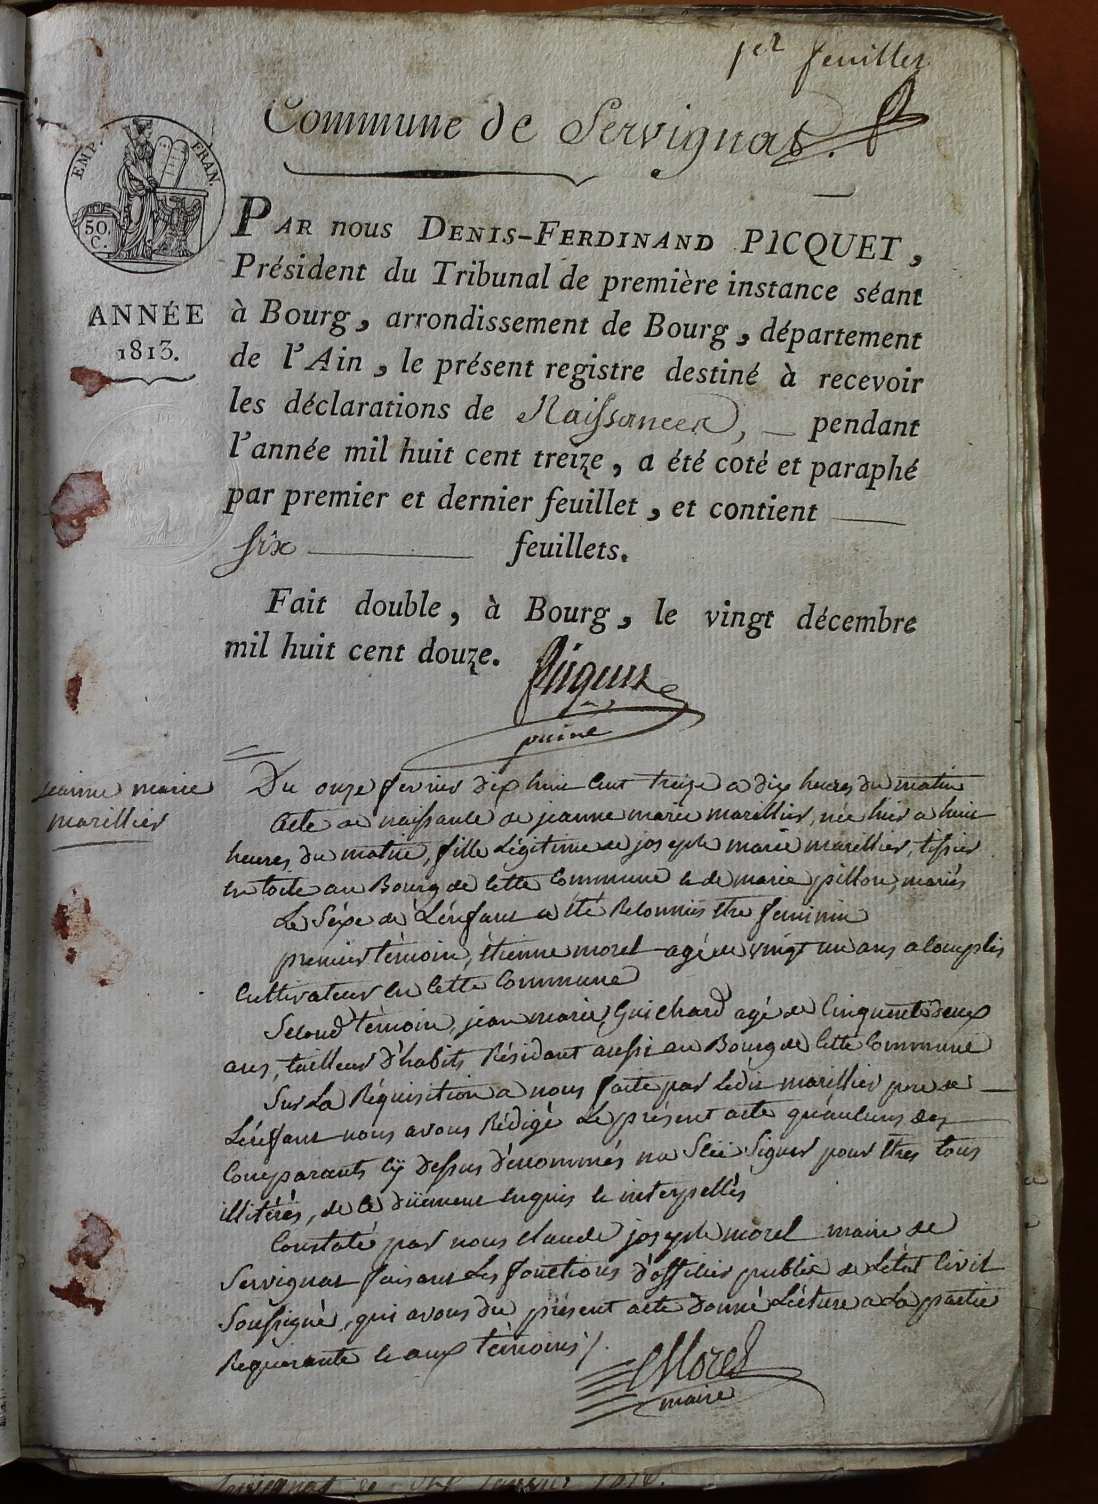 1er feuillet
Commune de Servignat.
EMP. FRAN.
50. C.
ANNÉE
1813.
PAR nous DENIS-FERDINAND PICQUET,
Président du Tribunal de première instance séant
à Bourg, arrondissement de Bourg, département
de l'Ain, le présent registre destiné à recevoir
les déclarations de Naissances, pendant
l'année mil huit cent treize, a été coté et paraphé
par premier et dernier feuillet, et contient
six feuillets.
Fait double, à Bourg, le vingt décembre
mil huit cent douze.
Picquet
jeanne marie
marillier
Du onze fevrier dix huit Cent treize a dix heures du matin
Acte de naissance de jeanne marie marillier, née hier a huit
heures du matin, fille Légitime de joseph marie marillier, tissier
en toile au Bourg de Cette Commune et de marie pillon, mariés
Le Séxe de L'énfant a été Reconnu être feminin
premier témoin, étienne morel agé de vingt un ans acomplis
Cultivateur en Cette Commune
Second témoin, jean marie Guichard agé de Cinquente deux
ans, tailleur d'habits Résidant aussi au Bourg de Cette Commune
Sur La Réquisition a nous faite par Ledit marillier pere de
L'énfant nous avons Rédigé Le présent acte qu'aucuns des
Comparants Cÿ dessus dénommés na Sçu Signer pour être tous
illitérés, de Ce düement enquis et interpellés
Constaté par nous claude joseph morel maire de
Servignat faisant Les fonctions d'officier public de L'état Civil
Soussigné, qui avons du présent acte donné Lécture a La partie
Requerante et aux témoins /.
Morel
maire